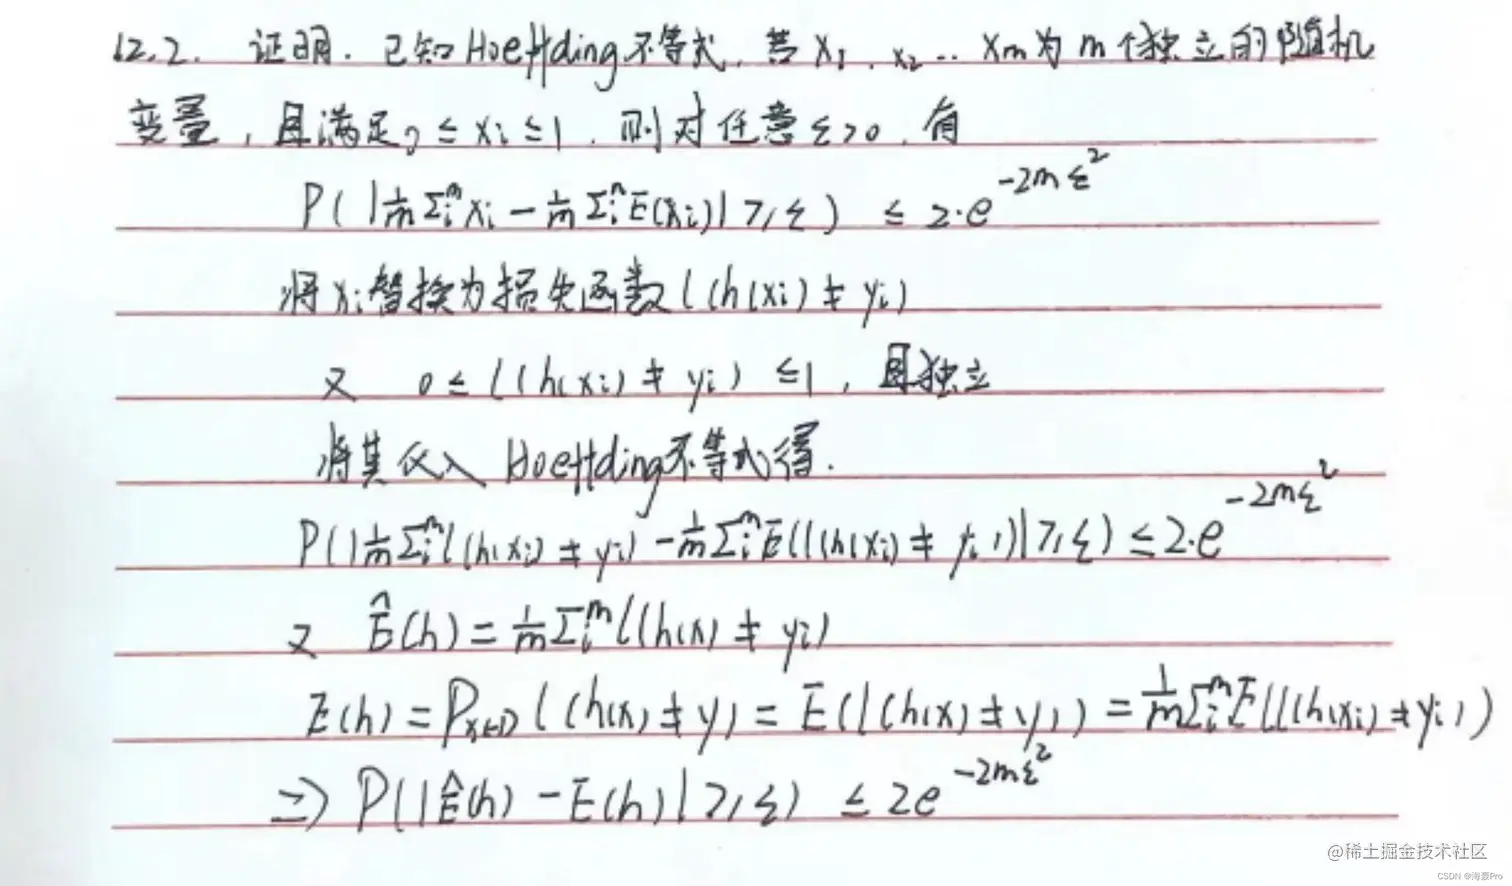 12.2. 证明. 已知Hoeffding不等式, 若 x₁, x₂ ... xm为 m个独立的随机
变量, 且满足 0 ≤ xi ≤ 1, 则对任意 ε>0, 有
P( |1/m Σᵢᵐ xi − 1/m Σᵢᵐ E(xi)| ≥ ε ) ≤ 2·e^(-2mε²)
将 xi 替换为损失函数 l(h(xi) ≠ yi)
又 0 ≤ l(h(xi) ≠ yi) ≤ 1, 且独立
将其代入 Hoeffding不等式得.
P(|1/m Σᵢᵐ l(h(xi) ≠ yi) − 1/m Σᵢᵐ E(l(h(xi) ≠ yi))| ≥ ε) ≤ 2·e^(-2mε²)
又 Ê(h) = 1/m Σᵢᵐ l(h(x) ≠ yi)
E(h) = P_{x∈D} l(h(x) ≠ y) = E(l(h(x) ≠ y)) = 1/m Σᵢᵐ E(l(h(xi) ≠ yi))
⇒ P(|Ê(h) − E(h)| ≥ ε) ≤ 2e^(-2mε²)
@稀土掘金技术社区
CSDN @海豪Pro